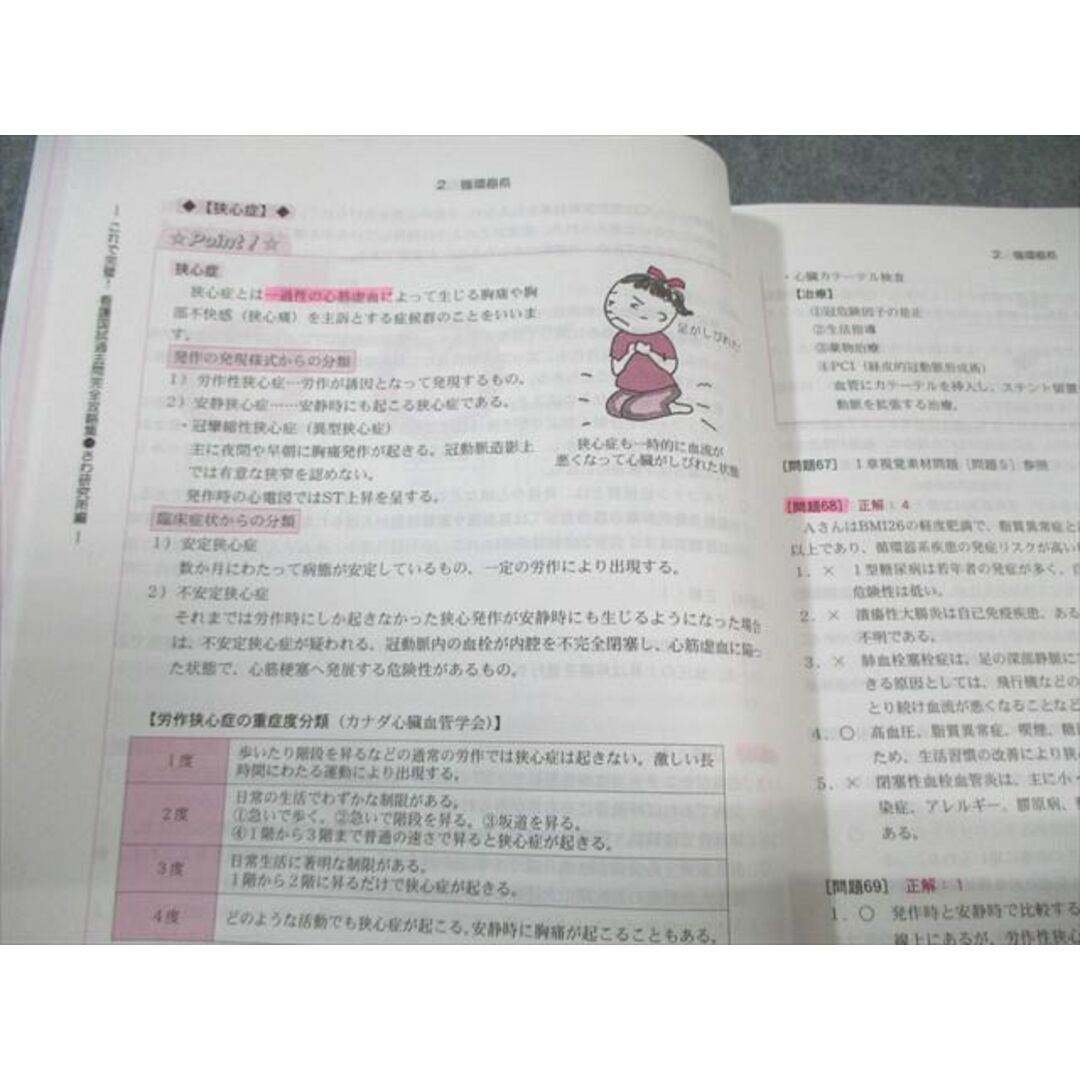 2. 循環器系
これで完璧! 看護国試過去問完全攻略集●さわ研究所編
◆【狭心症】◆
☆Point!☆
狭心症
狭心症とは一過性の心筋虚血によって生じる胸痛や胸
部不快感（狭心痛）を主訴とする症候群のことをいいま
す。
発作の発現様式からの分類
1）労作性狭心症…労作が誘因となって発現するもの。
2）安静狭心症……安静時にも起こる狭心症である。
・冠攣縮性狭心症（異型狭心症）
主に夜間や早朝に胸痛発作が起きる。冠動脈造影上
では有意な狭窄を認めない。
発作時の心電図ではST上昇を呈する。
足がしびれた
狭心症も一時的に血流が
悪くなって心臓がしびれた状態
臨床症状からの分類
1）安定狭心症
数か月にわたって病態が安定しているもの、一定の労作により出現する。
2）不安定狭心症
それまでは労作時にしか起きなかった狭心発作が安静時にも生じるようになった場合
は、不安定狭心症が疑われる。冠動脈内の血栓が内腔を不完全閉塞し、心筋虚血に陥っ
た状態で、心筋梗塞へ発展する危険性があるもの。
【労作狭心症の重症度分類（カナダ心臓血管学会）】
1度
歩いたり階段を昇るなどの通常の労作では狭心症は起きない。激しい長
時間にわたる運動により出現する。
2度
日常の生活でわずかな制限がある。
①急いで歩く。②急いで階段を昇る。③坂道を昇る。
④1階から3階まで普通の速さで昇ると狭心症が起きる。
3度
日常生活に著明な制限がある。
1階から2階に昇るだけで狭心症が起きる。
4度
どのような活動でも狭心症が起こる。安静時に胸痛が起こることもある。
2. 循環器系
・心臓カテーテル検査
【治療】
①冠危険因子の是正
②生活指導
③薬物治療
④PCI（経皮的冠動脈形成術）
血管にカテーテルを挿入し、ステント留置
動脈を拡張する治療。
[問題67] 1章視覚素材問題［問題5］参照
[問題68] 正解：4
AさんはBMI26の軽度肥満で、脂質異常症と
以上であり、循環器系疾患の発症リスクが高い
1. × 1型糖尿病は若年者の発症が多く、
危険性は低い。
2. × 潰瘍性大腸炎は自己免疫疾患、ある
不明である。
3. × 肺血栓塞栓症は、足の深部静脈に
きる原因としては、飛行機などの
とり続け血流が悪くなることなど
4. ○ 高血圧、脂質異常症、喫煙、糖
ため、生活習慣の改善により狭
5. × 閉塞性血栓血管炎は、主に小
染症、アレルギー、膠原病、
ある。
[問題69] 正解：1
1. ○ 発作時と安静時で比較する
線上にあるが、労作性狭心